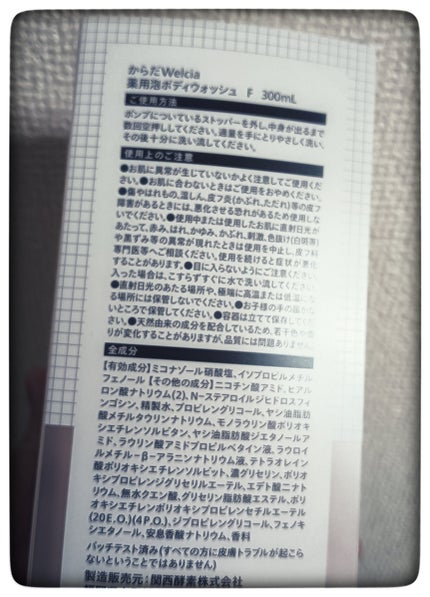 からだWelcia
薬用泡ボディウォッシュ F 300mL
ご使用方法
ポンプについているストッパーを外し、中身が出るまで
数回空押ししてください。適量を手にとりやさしく洗い、
その後十分に洗い流してください。
使用上のご注意
●お肌に異常が生じていないかよく注意してご使用くだ
さい。●お肌に合わないときはご使用をおやめください。
●傷やはれもの、湿しん、皮フ炎(かぶれ、ただれ)等の皮フ
障害があるときには、悪化させる恐れがあるため使用しな
いでください。●使用中または使用したお肌に直射日光が
あたって、赤み、はれ、かゆみ、かぶれ、刺激、色抜け(白斑等)
や黒ずみ等の異常が現れたときは使用を中止し、皮フ科
専門医等へご相談ください。使用を続けると症状が悪化
することがあります。●目に入らないようにご注意ください。
入った場合は、こすらずすぐに水で洗い流してください。
●直射日光のあたる場所や、極端に高温または低温にな
る場所には保管しないでください。●お子様の手の届かな
いところで保管してください。●容器は立てて保存してくだ
さい。●天然由来の成分を配合しているため、若干色や香
りが変化することがありますが、品質には問題ありません。
全成分
【有効成分】ミコナゾール硝酸塩、イソプロピルメチル
フェノール【その他の成分】ニコチン酸アミド、ヒアル
ロン酸ナトリウム(2)、N-ステアロイルジヒドロスフィ
ンゴシン、精製水、プロピレングリコール、ヤシ油脂肪
酸メチルタウリンナトリウム、モノラウリン酸ポリオキ
シエチレンソルビタン、ヤシ油脂肪酸ジエタノールア
ミド、ラウリン酸アミドプロピルベタイン液、ラウロイ
ルメチル-β-アラニンナトリウム液、テトラオレイン
酸ポリオキシエチレンソルビット、濃グリセリン、ポリオ
キシプロピレンジグリセリルエーテル、エデト酸二ナト
リウム、無水クエン酸、グリセリン脂肪酸エステル、ポリ
オキシエチレンポリオキシプロピレンセチルエーテル
(20E.O.)(4P.O.)、ジプロピレングリコール、フェノキ
シエタノール、安息香酸ナトリウム、香料
パッチテスト済み(すべての方に皮膚トラブルが起こら
ないということではありません)
製造販売元：関西酵素株式会社